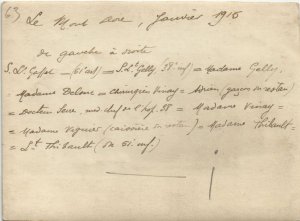 63) Le Mont Dore, Janvier 1916
de gauche à droite
S. Lt Gassot = (61 inf) = S. Lt Gally (38e inf) = Madame Gally,
= Madame Delorme = Chirurgien Vinay = Adrien (garçon de restau)
= Docteur med chef de l'hop. 58 = Madame Vinay =
= Madame (caissière du restau) = Madame Thibault =
= S. Lt Thibault (du 61. inf)